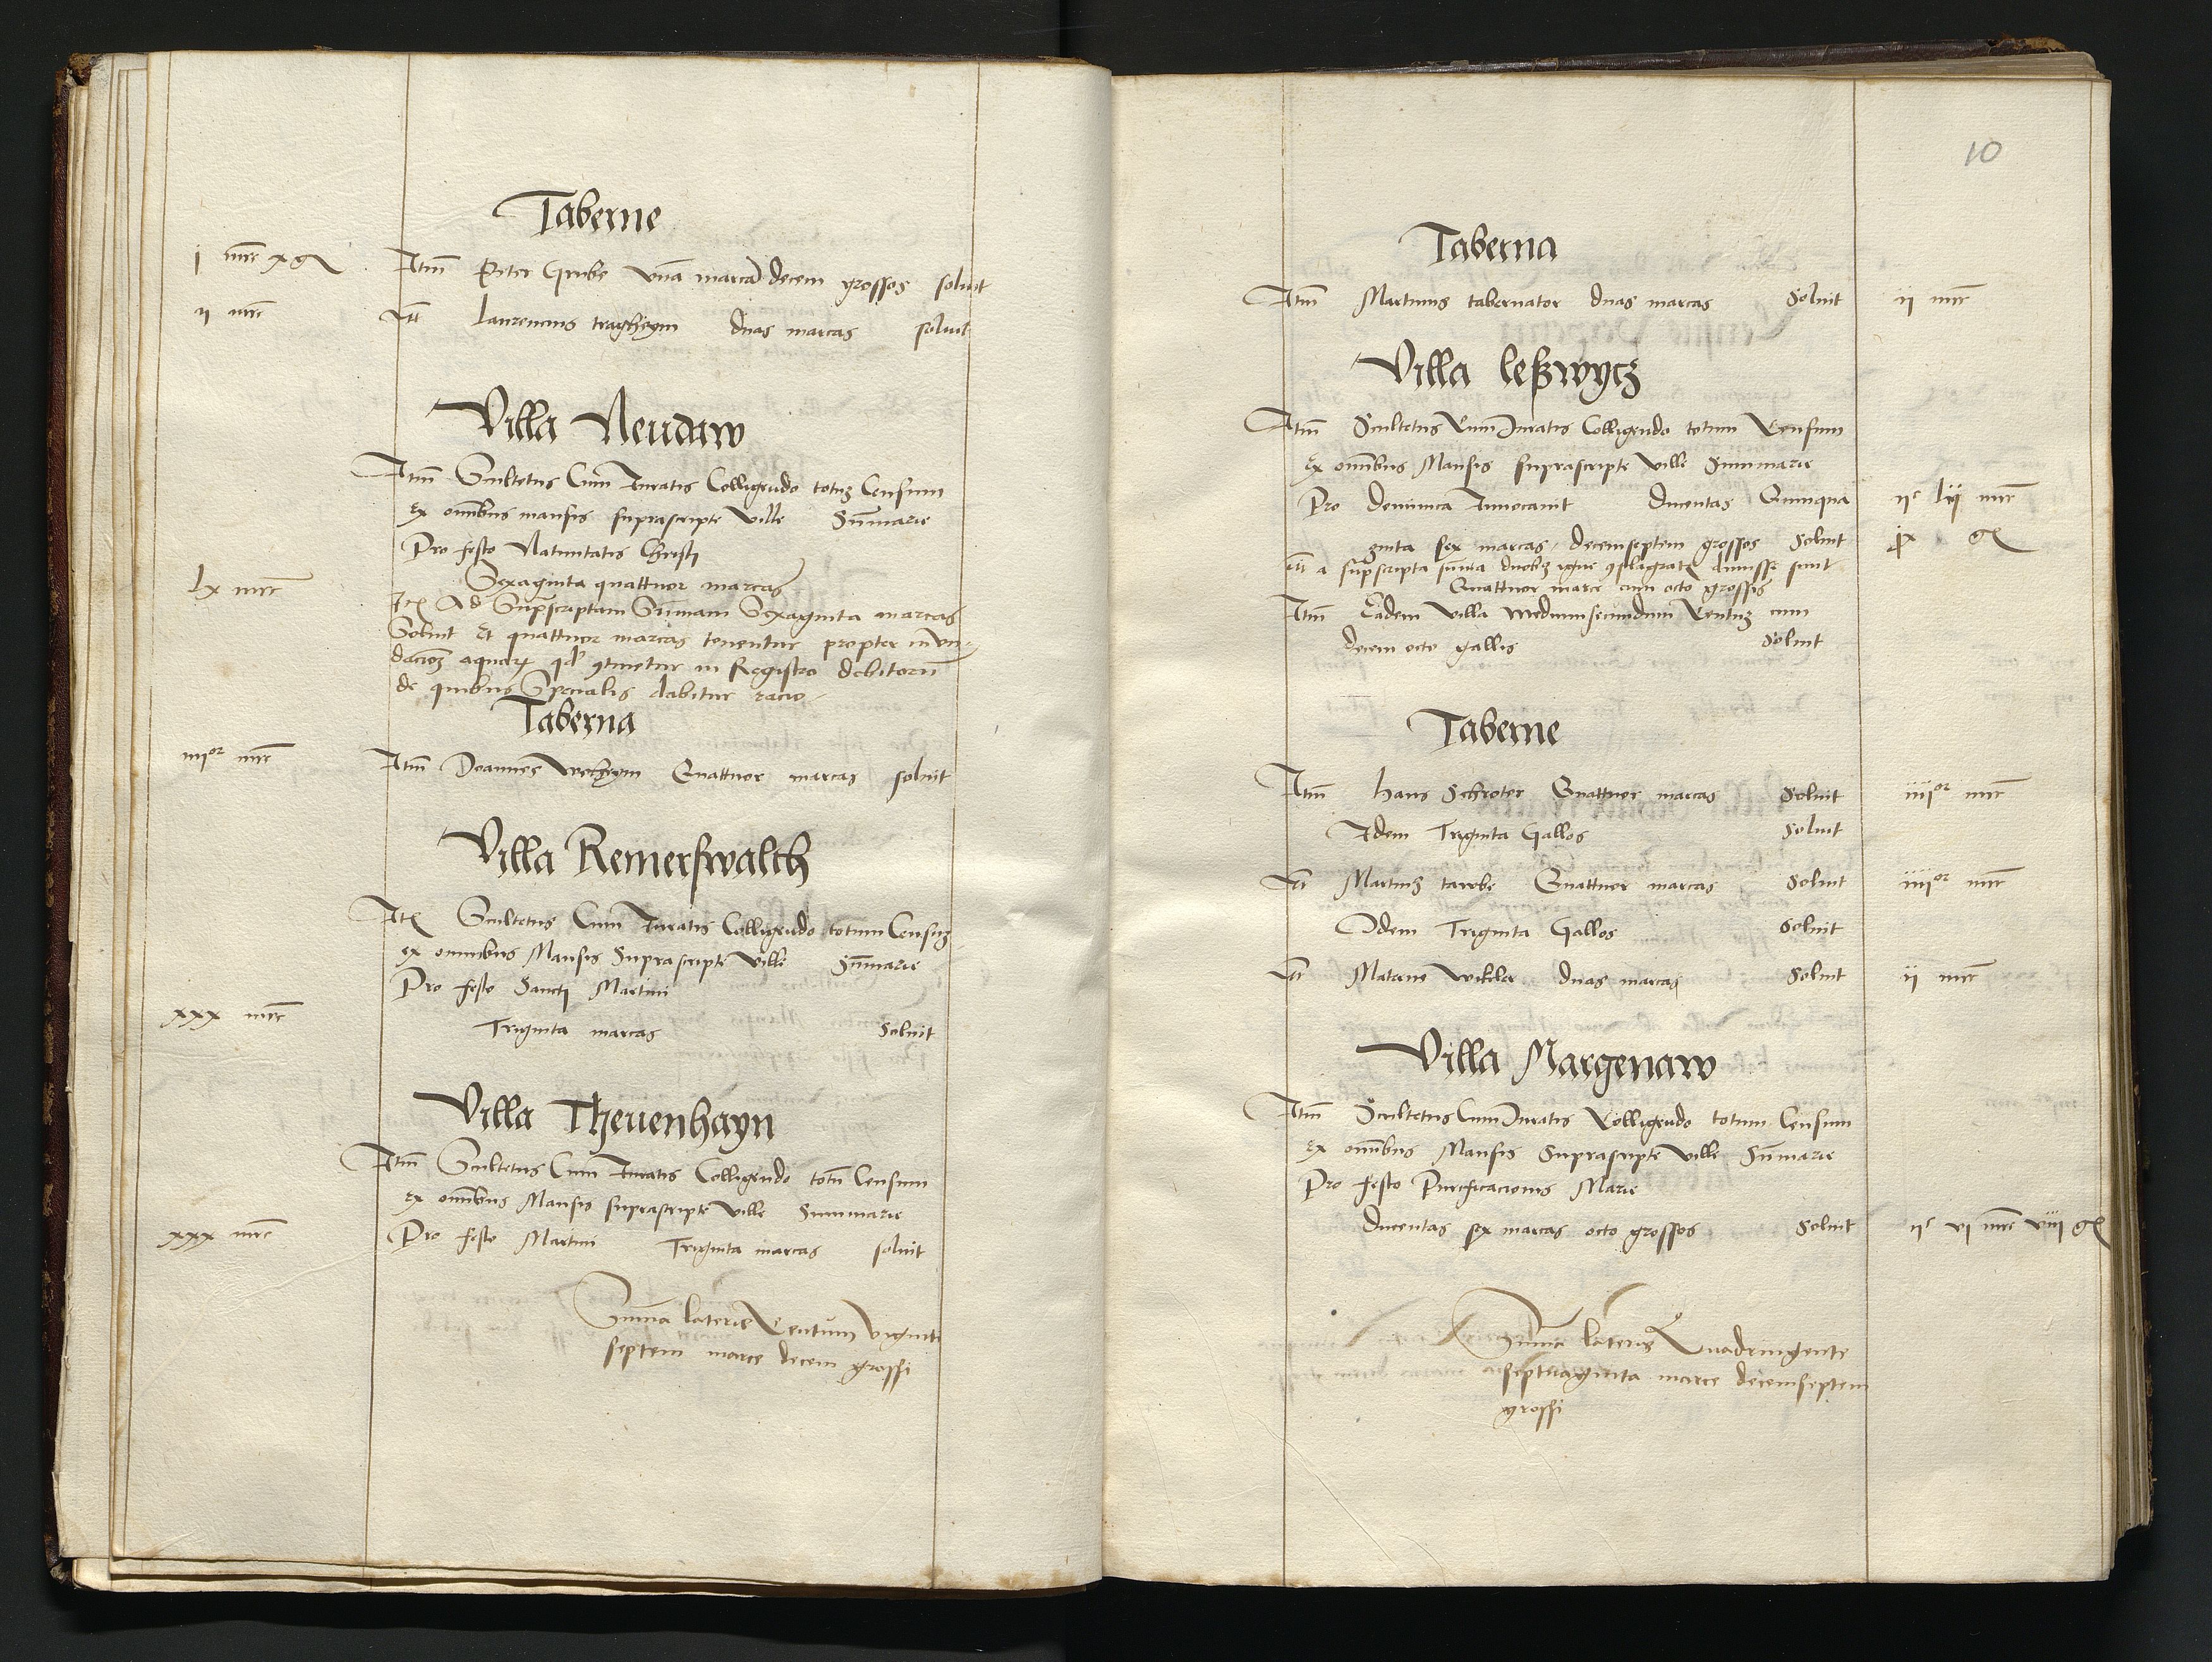 Taberne
j mrc x gr Itm Peter Grube Vna marca decem grossos soluit
ij mrc Itt Laurencius tragheym duas marcas soluit
Villa Neudaw
Itm Scultetus Cum Juratis Colligendo totuz Censum
Ex omnibus mansis suprascripte Ville Summarie
Pro festo Natiuitatis Christi
lx mrc Sexaginta quattuor marcas
Ite Ad Supscriptam Summam Sexaginta marcas
Soluit Et quattuor marcas tenentur propter inun-
dacioz aquarum qd continetur in Registro debitorum
de quibus Specialis dabitur racio
Taberna
iiijor mrc Itm Joannes Wecheym Quattuor marcas soluit
Villa Remerswalth
Ite Scultetus Cum Juratis Colligendo totum Censuz
ex omnibus Mansis Suprascripte Ville Summarie
Pro festo Sancti Martini
xxx mrc Triginta marcas Soluit
Villa Theuenhayn
Itm Scultetus Cum Juratis Colligendo totum Censum
Ex omnibus Mansis suprascripte Ville Summarie
xxx mrc Pro festo Martini Triginta marcas soluit
Summa lateris Centum viginti
septem marce decem grossi
10
Taberna
Itm Martinus tabernator duas marcas Soluit ij mrc
Villa leßwycz
Itm Scultetus Cum Juratis Colligendo totum Censum
Ex omnibus Mansis suprascripte Ville Summarie
Pro dominica Inuocauit ducentas Quinqua ijc lij mrc
ginta sex marcas decemseptem grossos Soluit ix gr
a supscripta summa duobz igne conflagratis dimisse sunt
Quattuor marce cum octo grossis
Itm Eadem Villa medium secundum Centuz cum
decem octo gallis Soluit
Taberne
Itm Hans Schroter Quattuor marcas Soluit iiijor mrc
Idem Triginta Gallos Soluit
Itt Martinz tawbe Quattuor marcas Soluit iiijor mrc
Idem Triginta Gallos Soluit
Itt Materne Wikler duas marcas Soluit ij mrc
Villa Margenaw
Itm Scultetus Cum Juratis Colligendo totum Censum
Ex omnibus Mansis Suprascripte Ville Summarie
Pro festo Purificacionis Marie
ducentas sex marcas octo grossos Soluit ijc vi mrc viij gr
Summa lateris Quadringente
septuaginta marce decemseptem
grossi